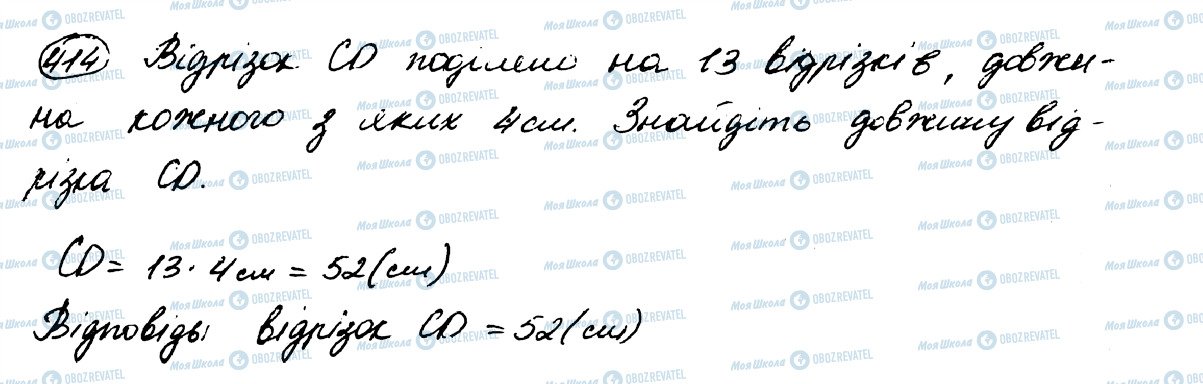 414 Відрізок CD поділено на 13 відрізків, довжи-
на кожного з яких 4см. Знайдіть довжину від-
різка CD.
CD = 13 · 4см = 52(см)
Відповідь: відрізок CD = 52(см)